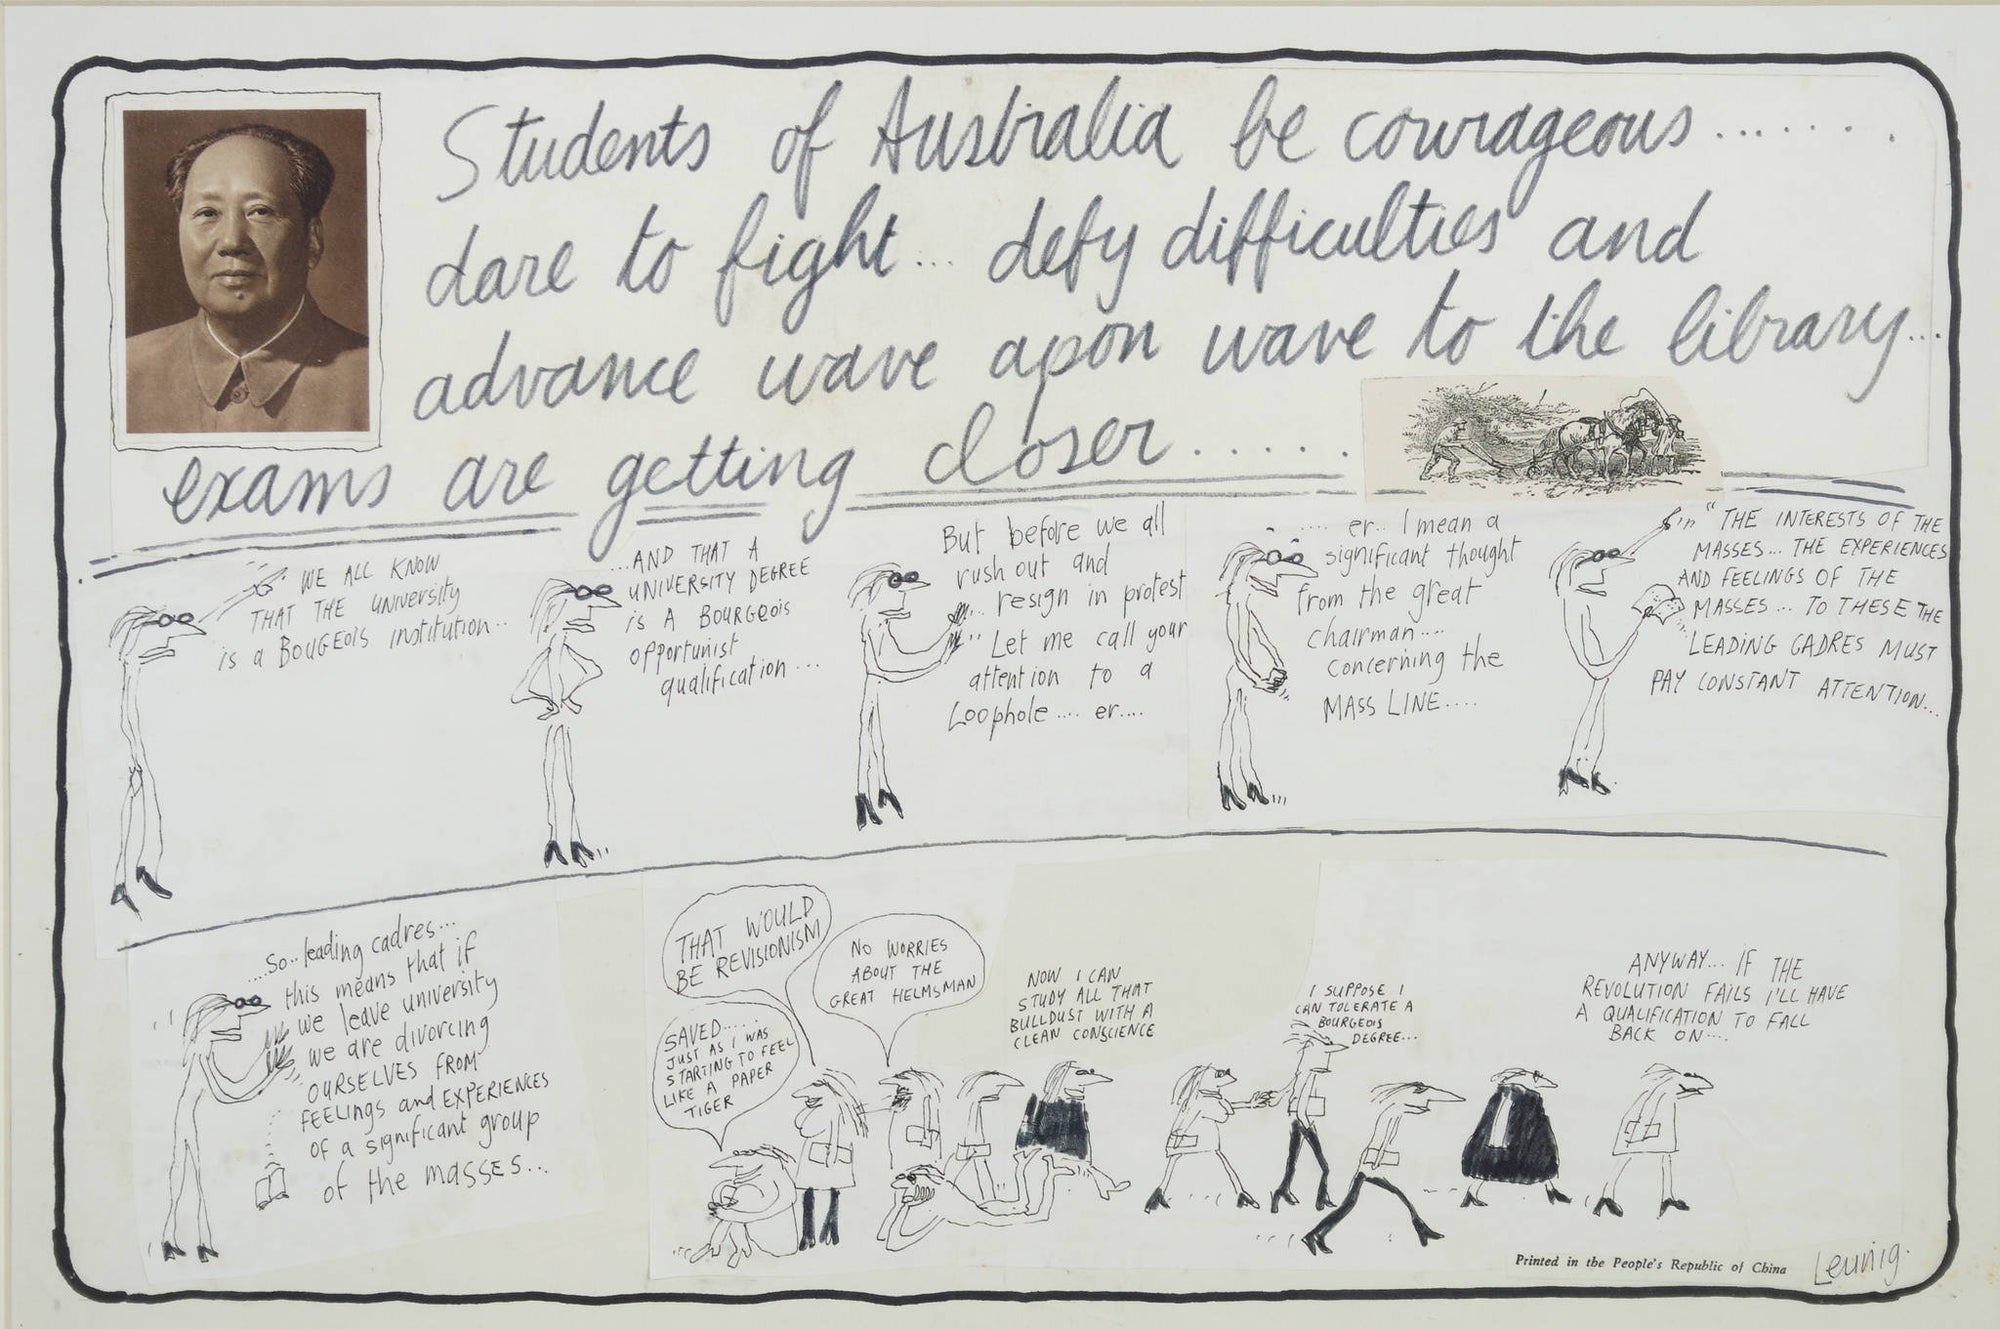 Students of Australia be courageous.......
dare to fight... defy difficulties and
advance wave apon wave to the library...
exams are getting closer.....
WE ALL KNOW
THAT THE UNIVERSITY
is a BOUGEOIS institution..
...AND THAT A
UNIVERSITY DEGREE
is A BOURGEOIS
opportunist
qualification...
But before we all
rush out and
... resign in protest
.. Let me call your
attention to a
Loophole.... er....
.... er.. I mean a
significant thought
from the great
chairman....
concerning the
MASS LINE....
in "THE INTERESTS OF THE
MASSES... THE EXPERIENCES
AND FEELINGS OF THE
MASSES... TO THESE THE
LEADING CADRES MUST
PAY CONSTANT ATTENTION...
....So.. leading cadres...
this means that if
we leave university
we are divorcing
OURSELVES FROM
FEELINGS and EXPERIENCES
OF a significant group
of the masses...
THAT WOULD
BE REVISIONISM
NO WORRIES
ABOUT THE
GREAT HELMSMAN
SAVED.....
JUST AS I WAS
STARTING TO FEEL
LIKE A PAPER
TIGER
NOW I CAN
STUDY ALL THAT
BULLDUST WITH A
CLEAN CONSCIENCE
I SUPPOSE I
CAN TOLERATE A
BOURGEOIS
DEGREE...
ANYWAY... IF THE
REVOLUTION FAILS I'LL HAVE
A QUALIFICATION TO FALL
BACK ON....
Printed in the People's Republic of China
Leunig.